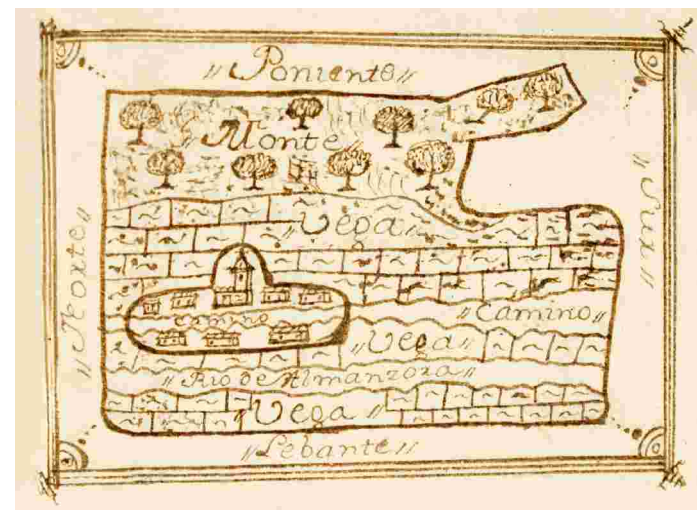 "Poniente"
"Monte
"Norte"
"Sur"
"Vega"
Camino
"Camino"
"Vega"
"Rio de Almanzora"
"Vega"
"Lebante"